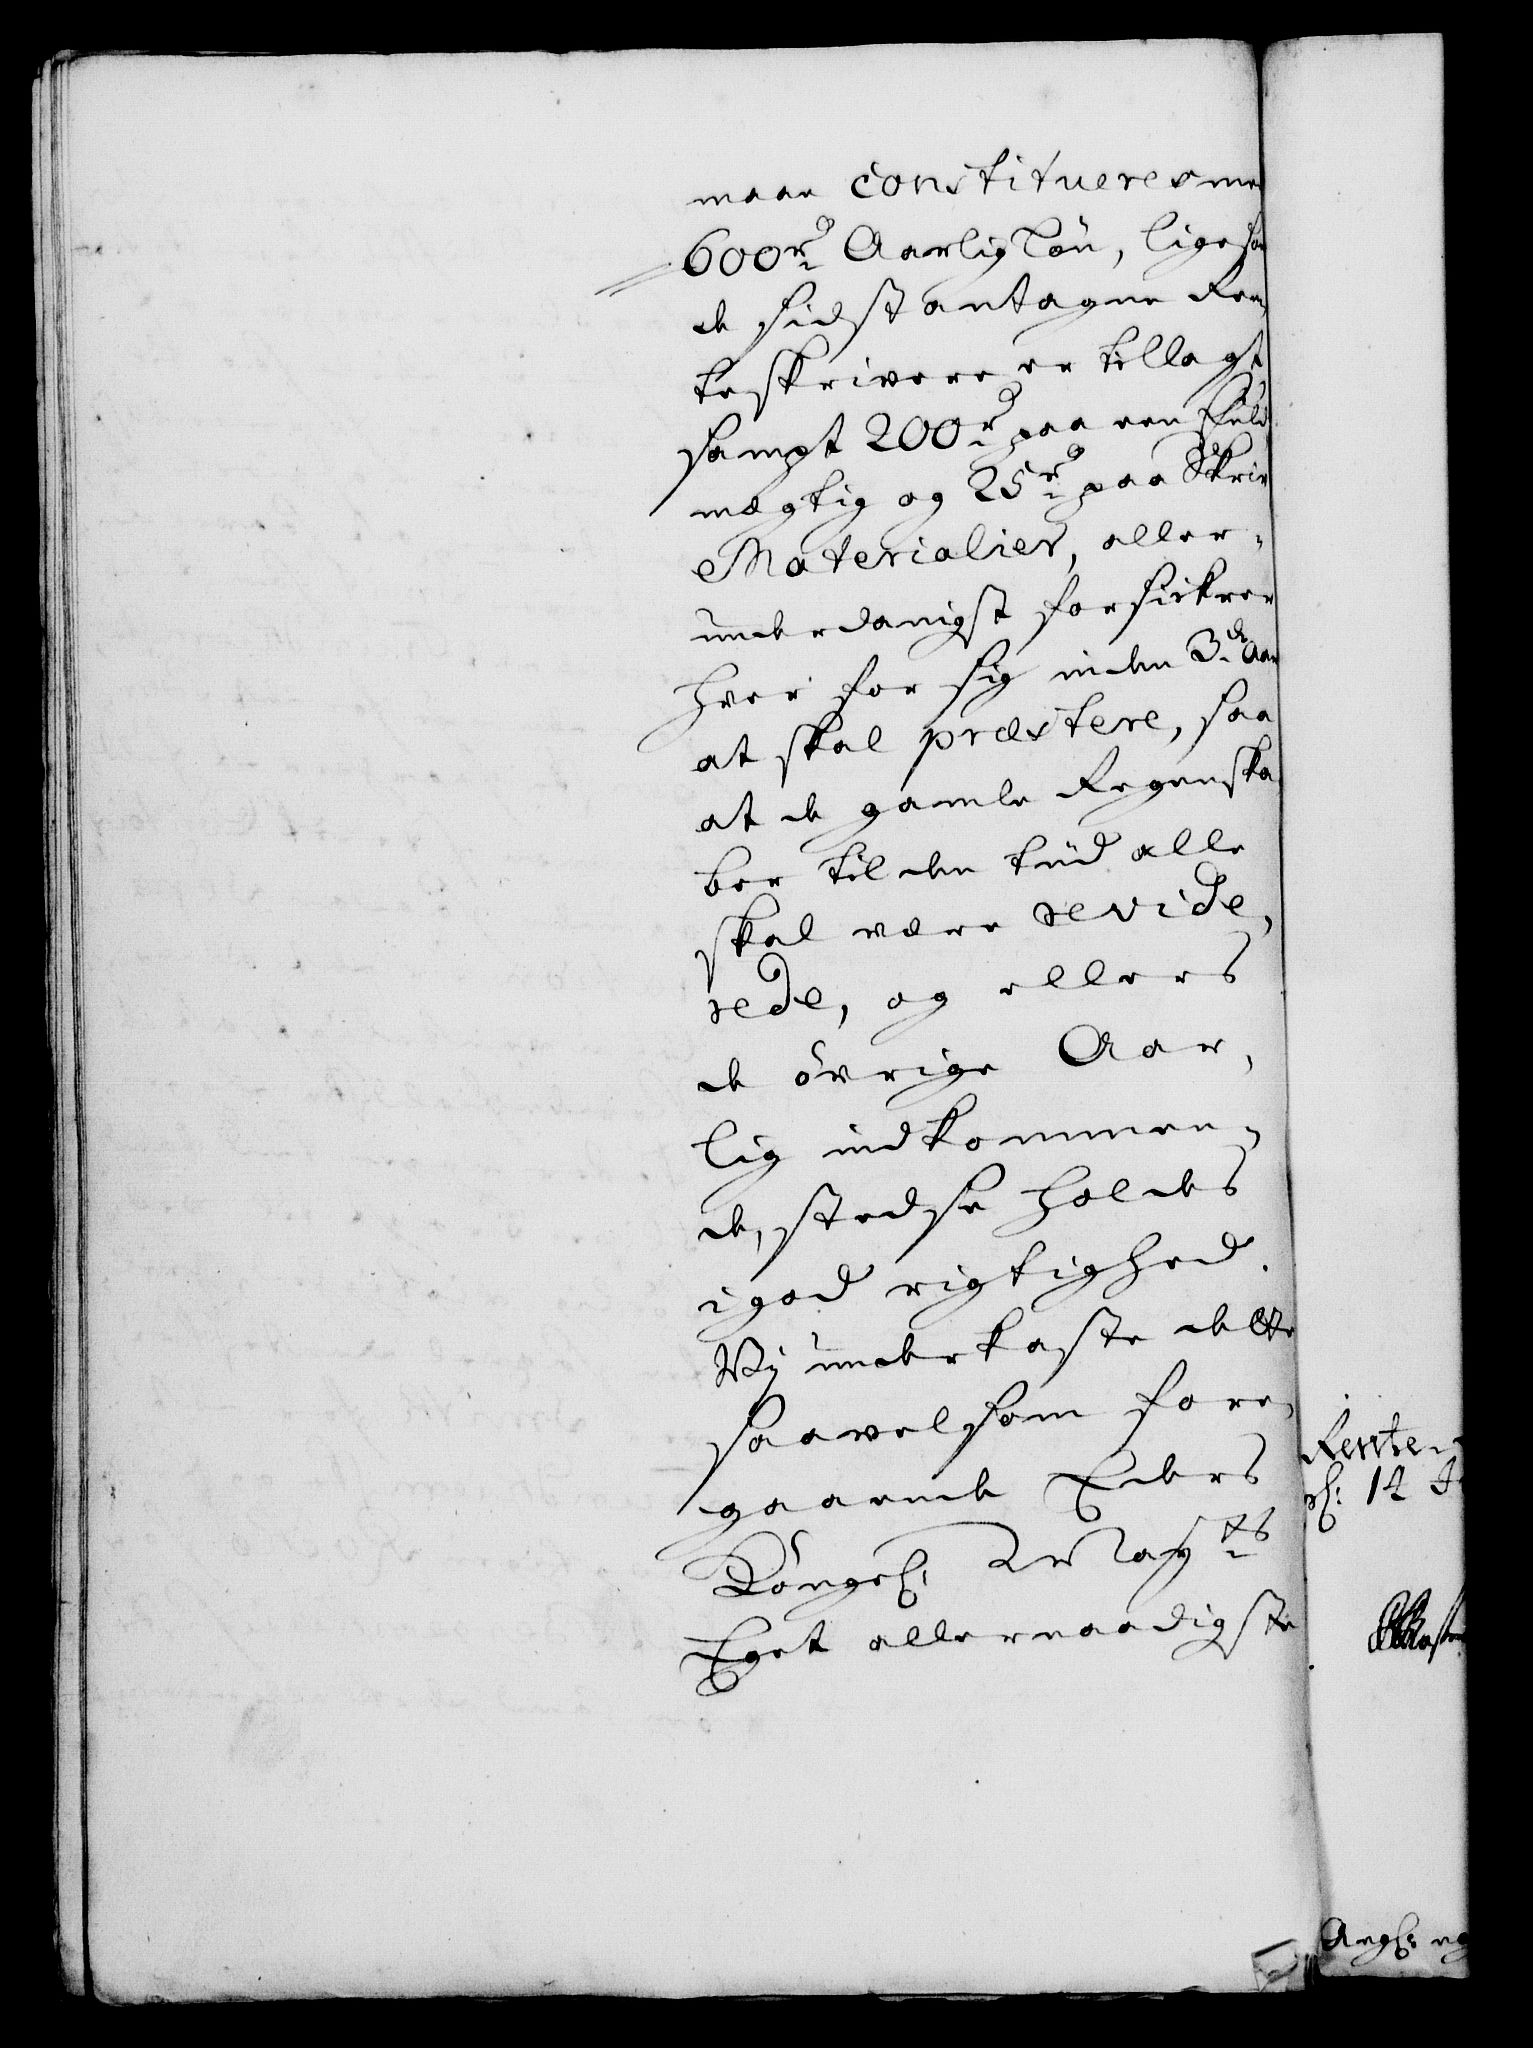 maae constitueres me
600 rd Aarlig Løn, ligesom
de sidst antagne Ren
teskrivere er tillagt
sampt 200 rd paa een Fuld
mægtig og 25 rd paa Skriv
Materialier, aller-
underdanigst forsickrer
hver for sig inden 3de Aar
at skal præstere, saa
at de gamle Regenska
ber til den tiid alle
skal være revide,
rede, og ellers
de øvrige Aar,
lig indkommen-
de, stedse holdes
i god rigtighed.
Vj underkaste dette
saavelsom fore,
gaaende Eders
Kongel: Mayts
Eget allernaadigste
Rente
d: 14